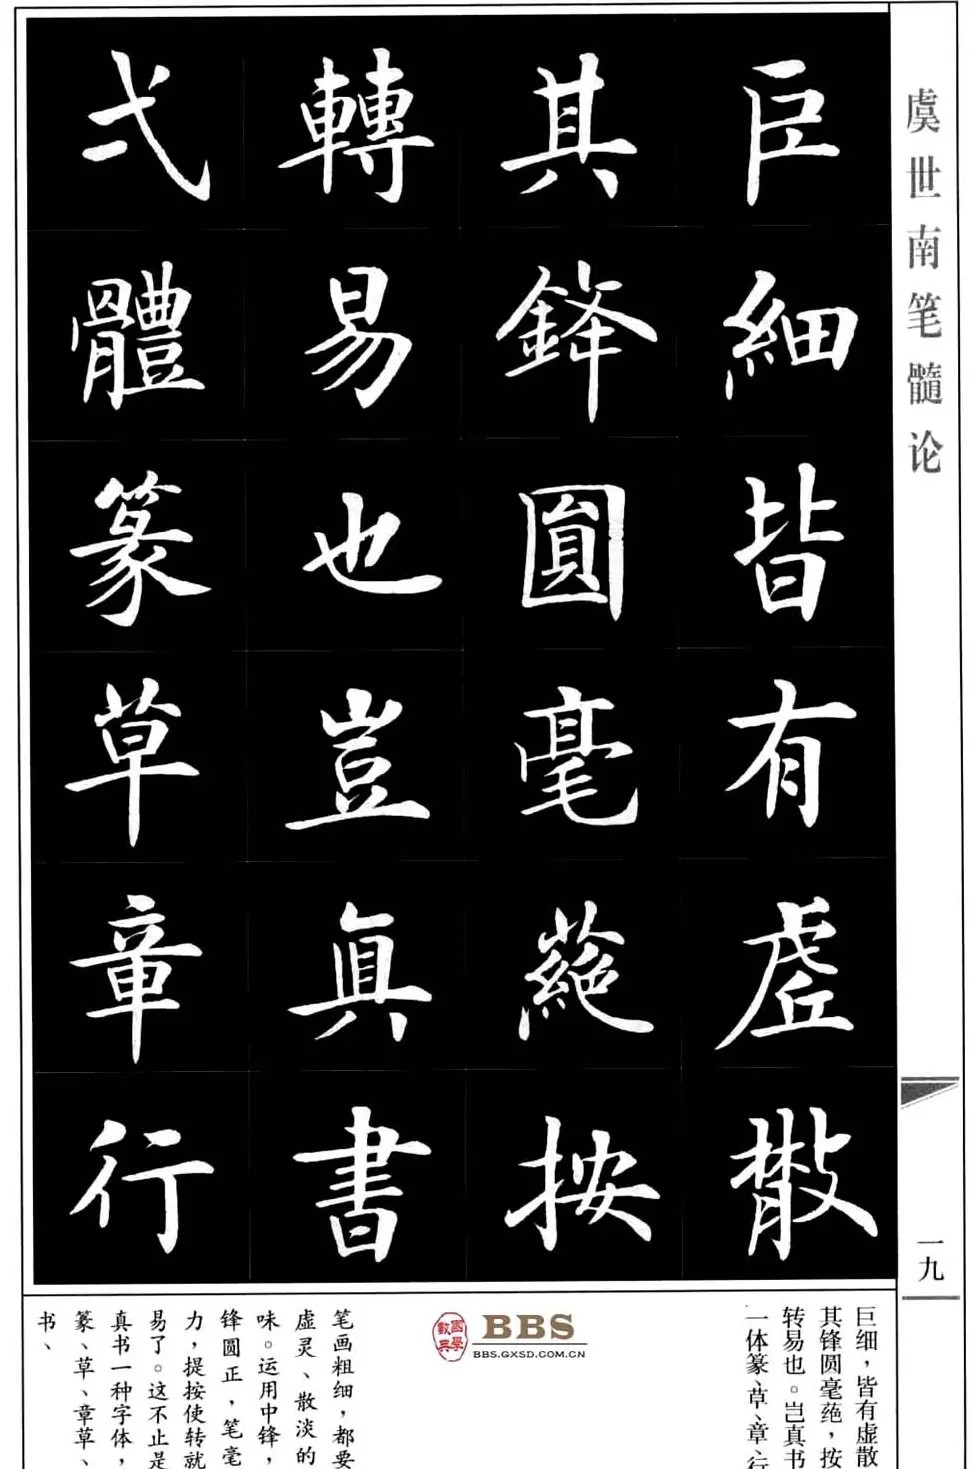 虞世南笔髓论
一九
巨細皆有虛散
其鋒圓毫蕝按
轉易也豈真書
弌體篆草章行
巨细，皆有虚散
其锋圆毫蕝，按
转易也。岂真书
一体篆、草、章、行
BBS
BBS.GXSD.COM.CN
国學
數典
笔画粗细，都要
虚灵、散淡的
味。运用中锋，
锋圆正，笔毫
力，提按使转就
易了。这不止是
真书一种字体，
篆、草、章草、
书、